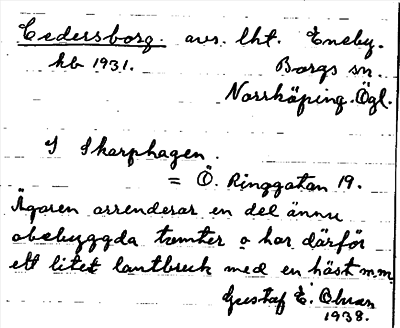 Cedersborg. avs. lht. Eneby.
hb 1931. Borgs sn.
Norrköping. Ögl.
I Skarphagen
= Ö. Ringgatan 19.
Ägaren arrenderar en del ännu
obebyggda tomter o har därför
ett litet lantbruk med en häst m.m.
Gustaf E. Ohman
1938.